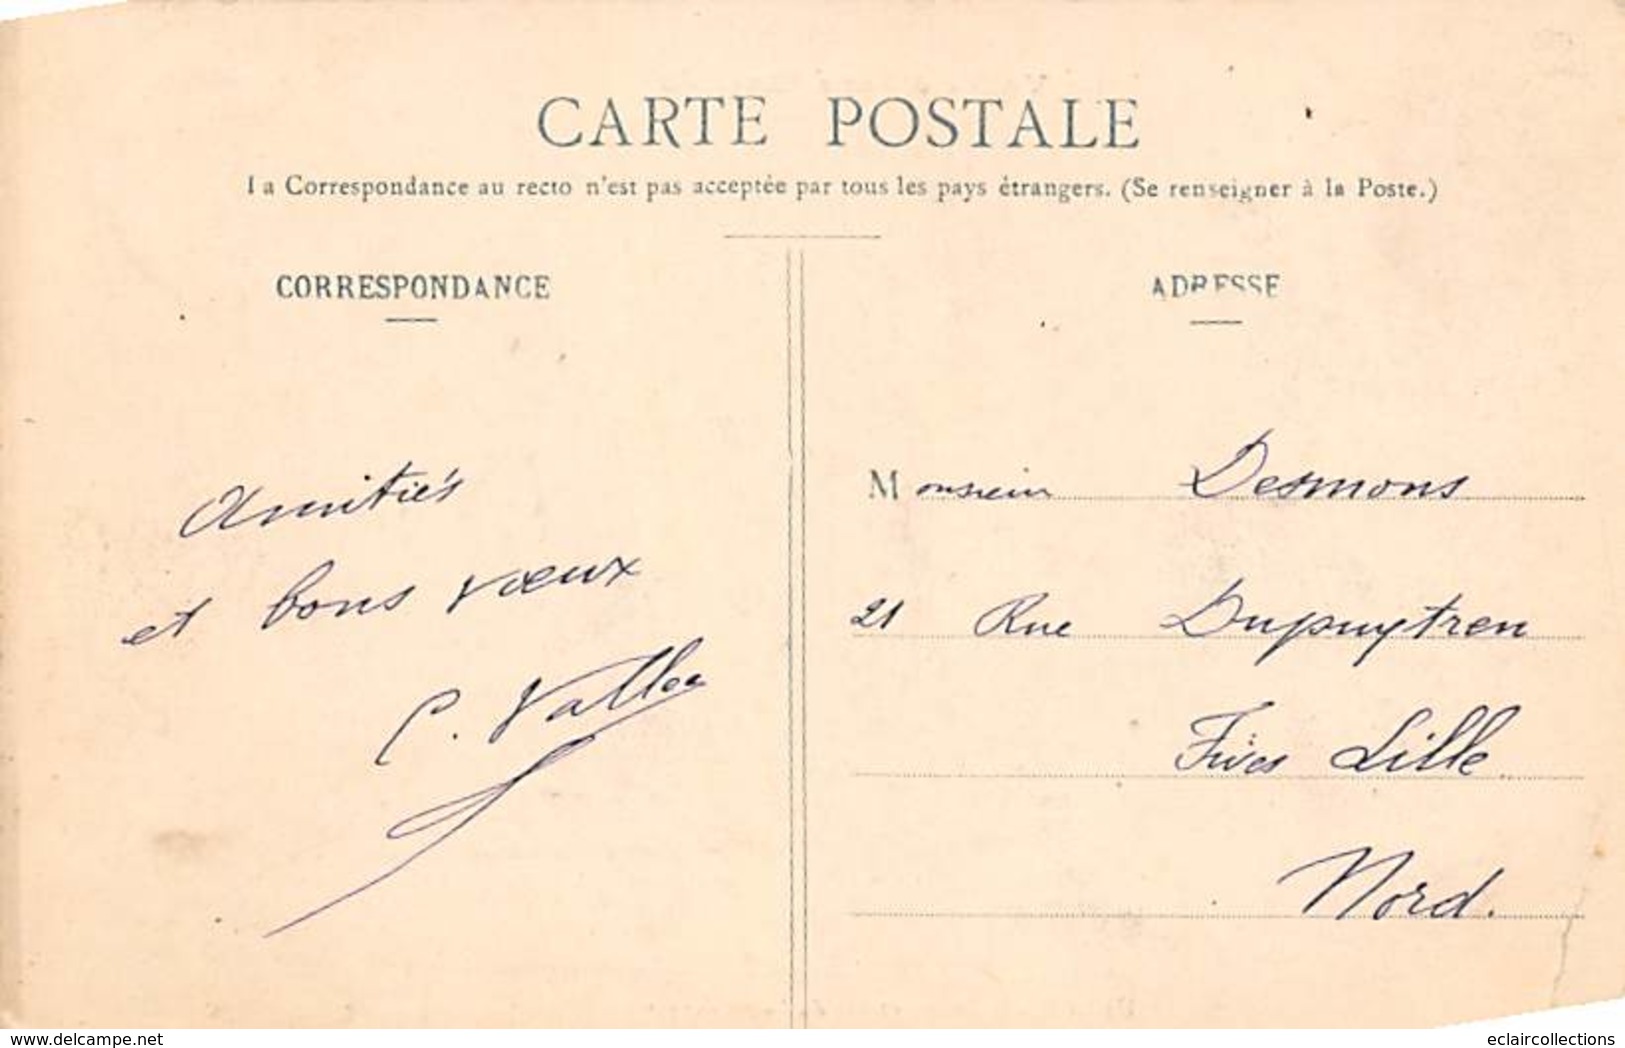 CARTE POSTALE
La Correspondance au recto n'est pas acceptée par tous les pays étrangers. (Se renseigner à la Poste.)
CORRESPONDANCE
Amitiés
et bons vœux
C. Vallee
ADRESSE
Monsieur Desmons
21 Rue Dupuytren
Fives Lille
Nord.
www.delcampe.net
eclaircollections